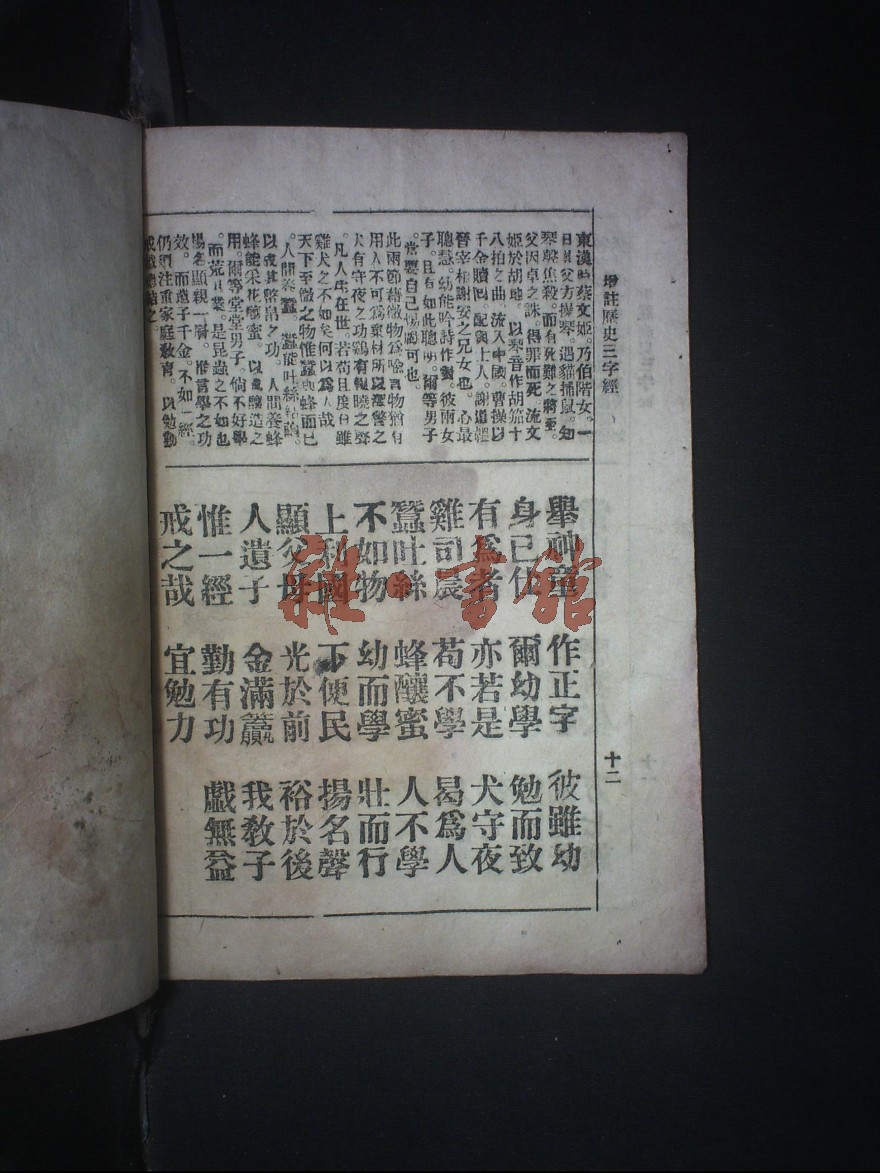 增註歷史三字經
十二
東漢時蔡文姬。乃伯階女。一
日其父方操琴。遇貓捕鼠。知
琴韓焦殺。而有死難之將至。
父因卓之誅。得罪而死 流文
姬於胡地。以琴音作胡笳十
八拍之曲 流入中國。曹操以
千金贖回。配與士人。謝道韞
晉宰相謝安之兄女也。心最
聰慧。幼能吟詩作賦。彼兩女
子。且有如此聰明。爾等男子
。當要自己惕勵可也。
此兩節藉微物爲喻言物猶有
用人不可爲棄材所以深警之
犬有守夜之功鷄有報曉之聲
。凡人生在世。若苟且度日雖
雞犬之不如矣何以爲人哉
天下至微之物惟蠶與蜂而已
。人間養蠶。蠶能吐絲
以成其幣帛之功。人間養蜂
蜂能采花釀蜜。以成釀造之
用。爾等堂堂男子。倘不好學
。而荒其業。是昆蟲之不如也
揚名顯親一層。推言學之功
效。而遺子千金。不如一經。
仍須注重家庭教育。以勉勤
戒戲總結之。
舉神童 作正字 彼雖幼
身已仕 爾幼學 勉而致
有爲者 亦若是 犬守夜
雞司晨 苟不學 曷爲人
蠶吐絲 蜂釀蜜 人不學
不如物 幼而學 壯而行
上利國 下便民 揚名聲
顯父母 光於前 裕於後
人遺子 金滿籯 我教子
惟一經 勤有功 戲無益
戒之哉 宜勉力
雜·書館